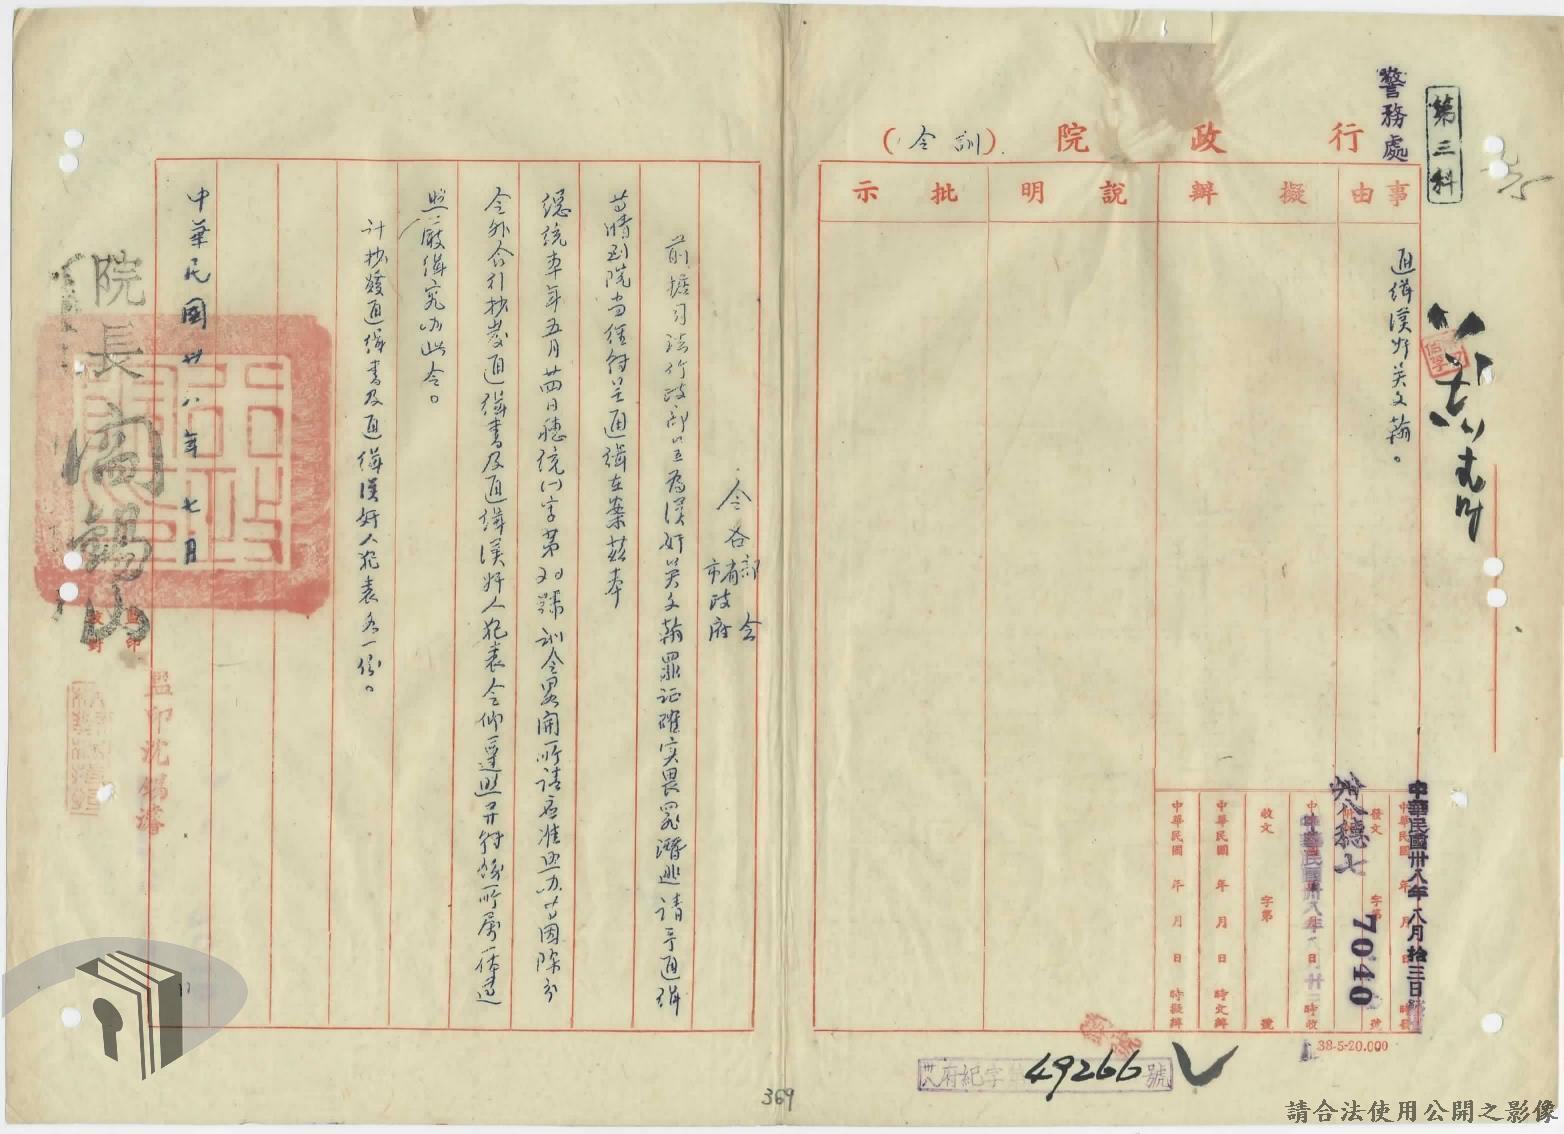 第三科
警務處
行政院(訓令)
事由
擬辦
說明
批示
通緝漢奸吳文翰。
中華民國卅八年八月拾三日
發文
字第
號
卅八穗七
7040
中華民國 年 月 日 時收
收文
字第
號
中華民國 年 月 日 時文辦
中華民國 年 月 日 時擬辦
38-5-20.000
府紀字第49266號
令各部會
省市政府
前據司法行政部呈為漢奸吳文翰罪証確实畏罪潛逃請予通緝
等情到院当經轉呈通緝在案茲奉
總統本年五月廿四日穗統(一)字第 號訓令畧開所請應准照办等因除分
令外合行抄發通緝書及通緝漢奸人犯表令仰遵照并轉飭所属一体遵
照嚴緝究办此令。
計抄發通緝書及通緝漢奸人犯表各一份。
中華民國卅八年七月 日
院長 閻錫山
監印
校對
監印沈錫濬
369
請合法使用公開之影像